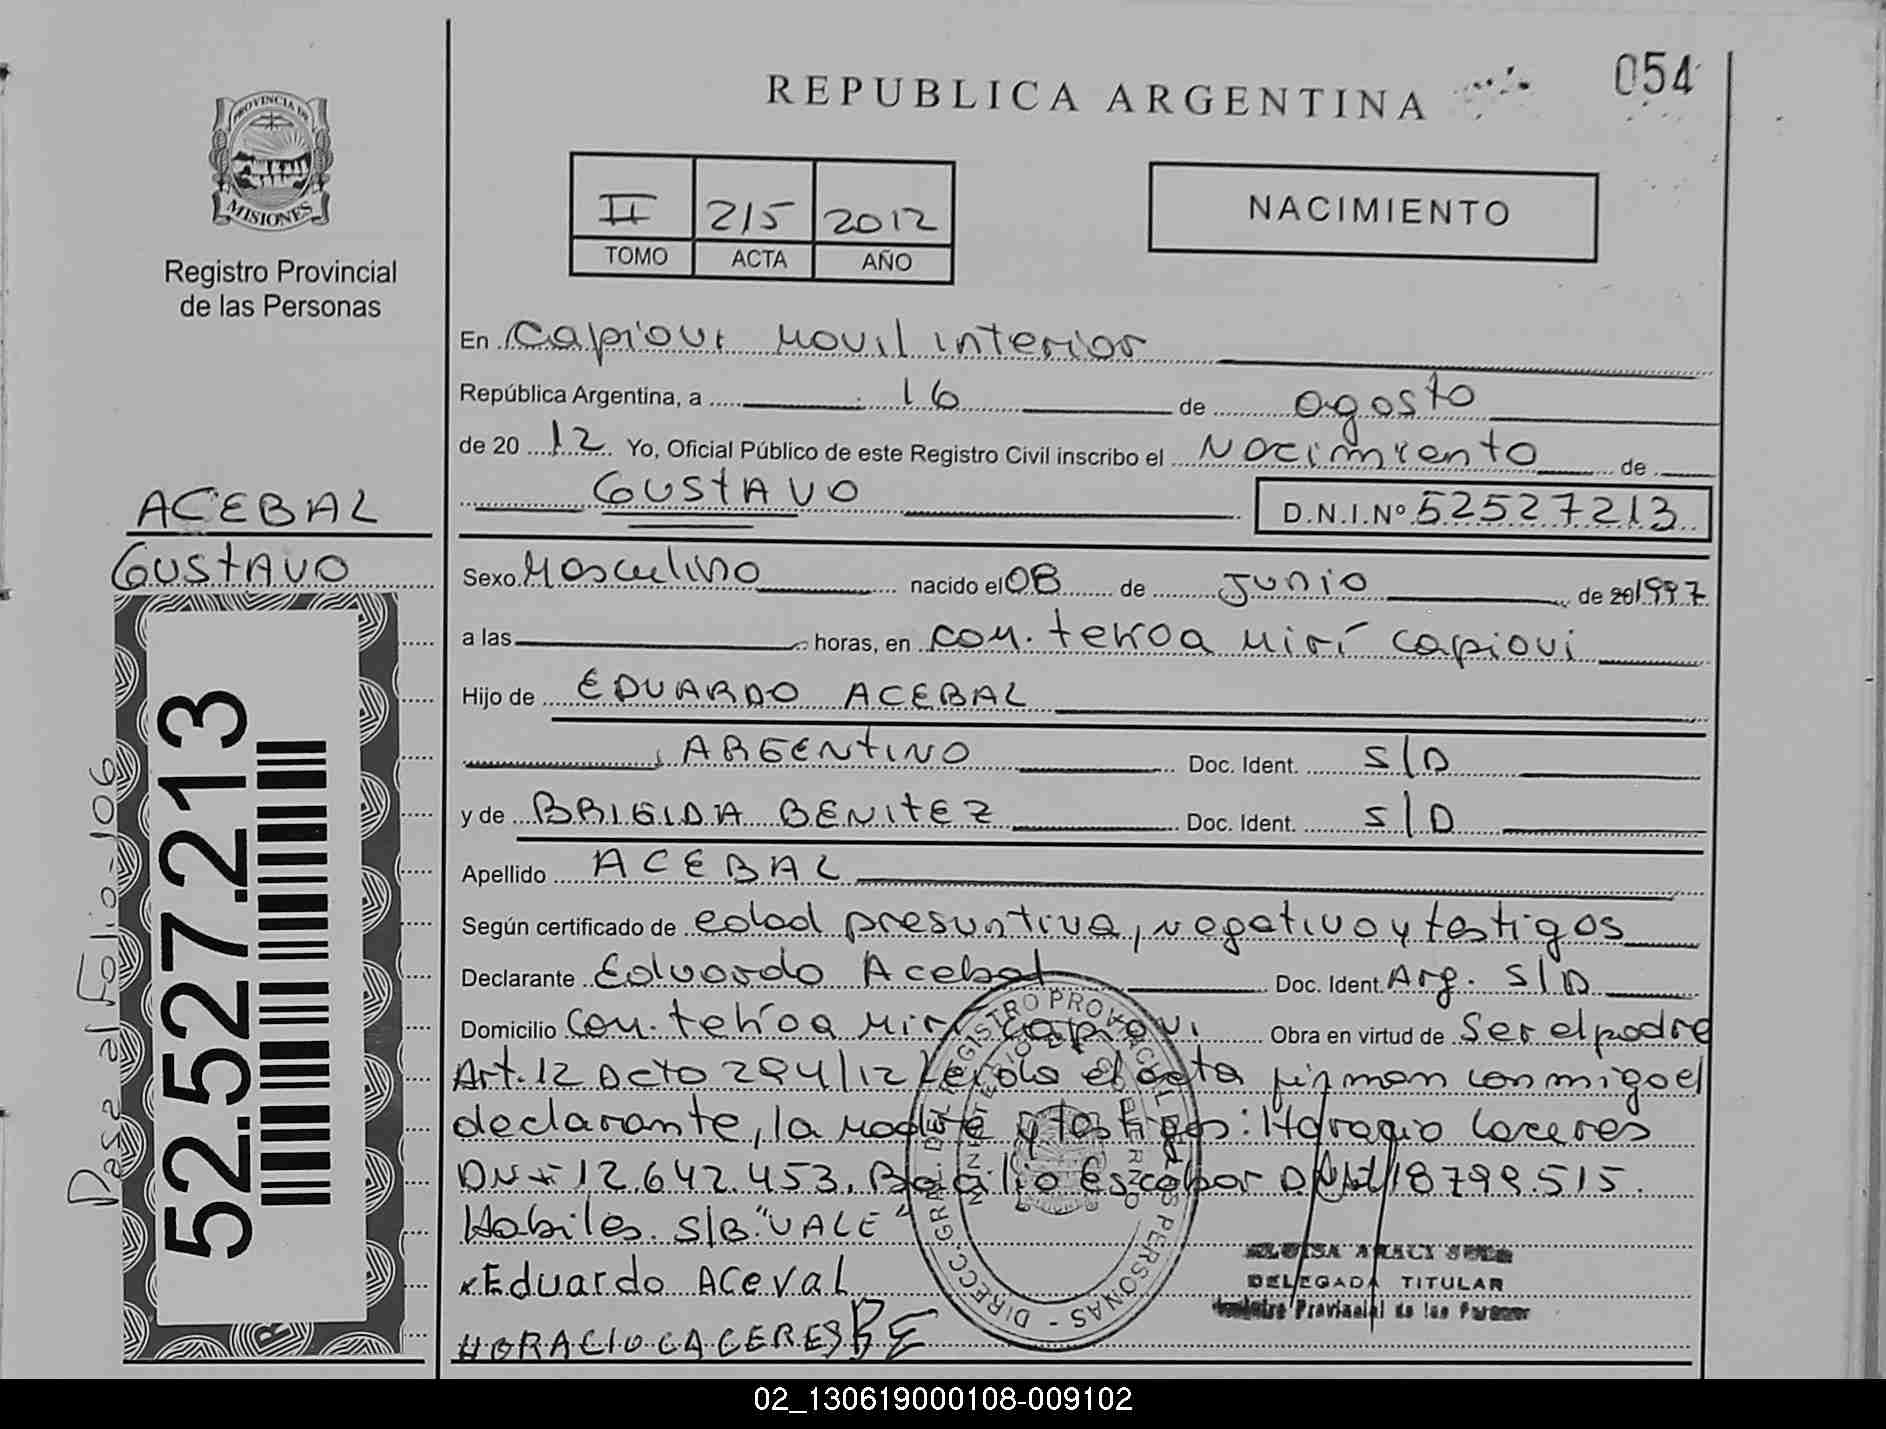 054
REPUBLICA ARGENTINA
PROVINCIA DE
MISIONES
Registro Provincial
de las Personas
II 215 2012
TOMO ACTA AÑO
NACIMIENTO
En Capiovi Movil interior
República Argentina, a 16 de agosto
de 2012 Yo, Oficial Público de este Registro Civil inscribo el Nacimiento de
GUStAVO D.N.I.Nº 52527213
ACEBAL
GUStAVO
Sexo Masculino nacido el 08 de Junio de 20 1997
a las horas, en com. tekoa Mirí Capiovi
Hijo de EDUARDO ACEBAL
, ARGENtINO Doc. Ident. S/D
y de BRIGIDA BENItEZ Doc. Ident. S/D
Apellido ACEBAL
Según certificado de edad presuntiva, negativo y testigos
Declarante Eduardo Acebal Doc. Ident. Arg. S/D
Domicilio com. tekoa Mirí Capiovi Obra en virtud de Ser el padre
Art. 12 Dcto 294/12 Leida el acta firman conmigo el
declarante, la madre y testigos: Horacio Caceres
DNI 12.642.453. Basilio Escobar DNI 18799.515.
Habiles. S/B. "VALE"
x Eduardo Aceval
HORACIO CACERES BE
DIRECC. GRAL. DEL REGISTRO PROVINCIAL DE LAS PERSONAS
MINISTERIO DE GOBIERNO
DELEGADA TITULAR
Registro Provincial de las Personas
52.527.213
Pasa al Folio-106
02_130619000108-009102